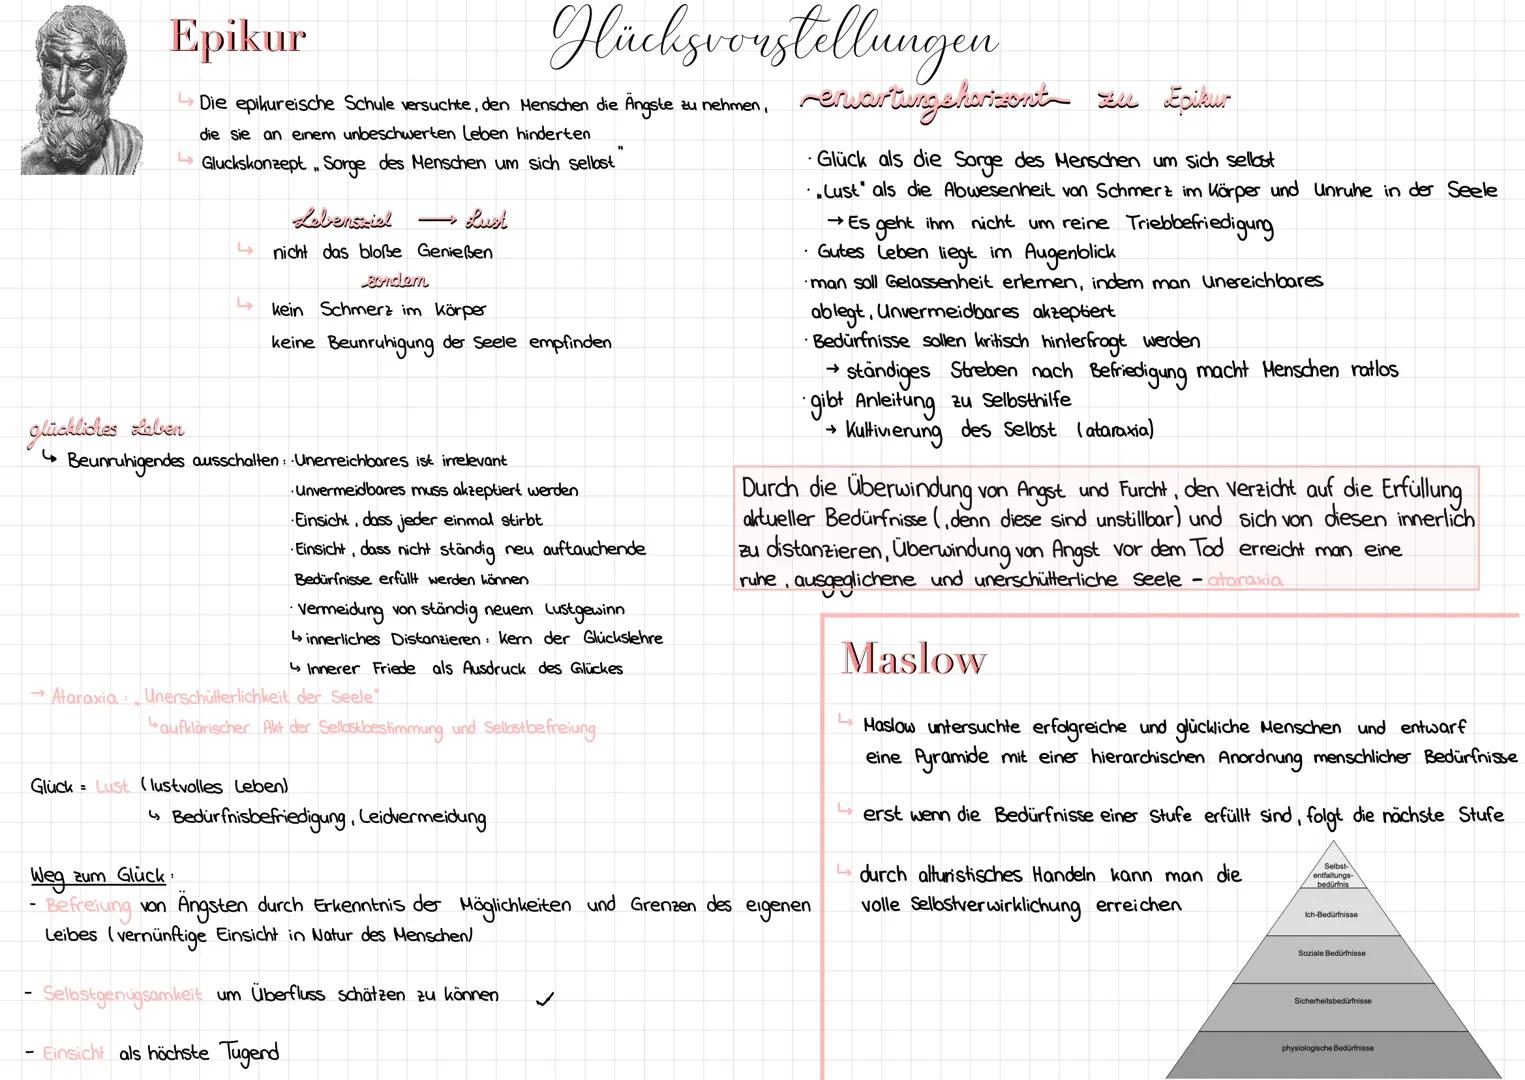 Glücksvorstellungen
Epikur
↳ Die epikureische Schule versuchte, den Menschen die Ängste zu nehmen,
die sie an einem unbeschwerten Leben hinderten
↳ Gluckskonzept „Sorge des Menschen um sich selbst"
Lebensziel → Lust
↳ nicht das bloße Genießen
sondern
↳ kein Schmerz im Körper
keine Beunruhigung der Seele empfinden
glückliches Leben
↳ Beunruhigendes ausschalten: ·Unerreichbares ist irrelevant
·Unvermeidbares muss akzeptiert werden
·Einsicht, dass jeder einmal stirbt
·Einsicht, dass nicht ständig neu auftauchende
Bedürfnisse erfüllt werden können
· Vermeidung von ständig neuem Lustgewinn
↳ innerliches Distanzieren: Kern der Glückslehre
↳ Innerer Friede als Ausdruck des Glückes
→ Ataraxia: „Unerschütterlichkeit der Seele"
↳ aufklärischer Akt der Selbstbestimmung und Selbstbefreiung
Glück = Lust (lustvolles Leben)
↳ Bedürfnisbefriedigung, Leidvermeidung
Weg zum Glück:
- Befreiung von Ängsten durch Erkenntnis der Möglichkeiten und Grenzen des eigenen
Leibes (vernünftige Einsicht in Natur des Menschen)
- Selbstgenügsamkeit um Überfluss schätzen zu können ✓
- Einsicht als höchste Tugend
erwartungshorizont zu Epikur
· Glück als die Sorge des Menschen um sich selbst
· „Lust" als die Abwesenheit von Schmerz im Körper und Unruhe in der Seele
→ Es geht ihm nicht um reine Triebbefriedigung
· Gutes Leben liegt im Augenblick
· man soll Gelassenheit erlernen, indem man Unereichbares
ablegt, Unvermeidbares akzeptiert
· Bedürfnisse sollen kritisch hinterfragt werden
→ ständiges Streben nach Befriedigung macht Menschen ratlos
· gibt Anleitung zu Selbsthilfe
→ Kultivierung des Selbst (ataraxia)
Durch die Überwindung von Angst und Furcht, den Verzicht auf die Erfüllung
aktueller Bedürfnisse (,denn diese sind unstillbar) und sich von diesen innerlich
zu distanzieren, Überwindung von Angst vor dem Tod erreicht man eine
ruhe, ausgeglichene und unerschütterliche Seele - ataraxia
Maslow
↳ Maslow untersuchte erfolgreiche und glückliche Menschen und entwarf
eine Pyramide mit einer hierarchischen Anordnung menschlicher Bedürfnisse
↳ erst wenn die Bedürfnisse einer Stufe erfüllt sind, folgt die nächste Stufe
↳ durch alturistisches Handeln kann man die
volle Selbstverwirklichung erreichen
Selbst-
entfaltungs-
bedürfnis
Ich-Bedürfnisse
Soziale Bedürfnisse
Sicherheitsbedürfnisse
physiologische Bedürfnisse